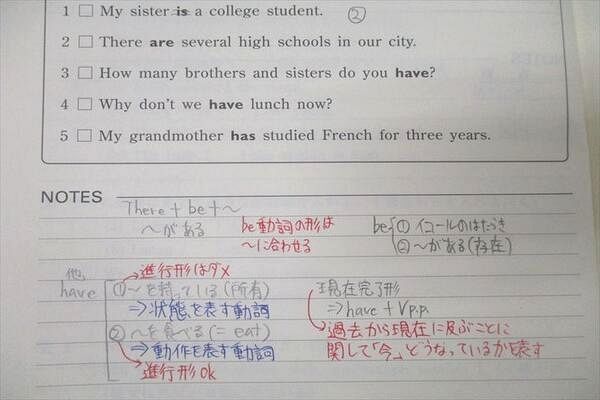 1 □ My sister is a college student. ②
2 □ There are several high schools in our city.
3 □ How many brothers and sisters do you have?
4 □ Why don't we have lunch now?
5 □ My grandmother has studied French for three years.
NOTES
There + be + ～
～がある
be動詞の形は
～に合わせる
be ① イコールのはたらき
② ～がある(存在)
他,
have
進行形はダメ
① ～を持っている(所有)
⇒状態を表す動詞
② ～を食べる(= eat)
⇒動作を表す動詞
進行形ok
現在完了形
⇒ have + Vp.p.
過去から現在に及ぶことに
関して「今」どうなっているか表す